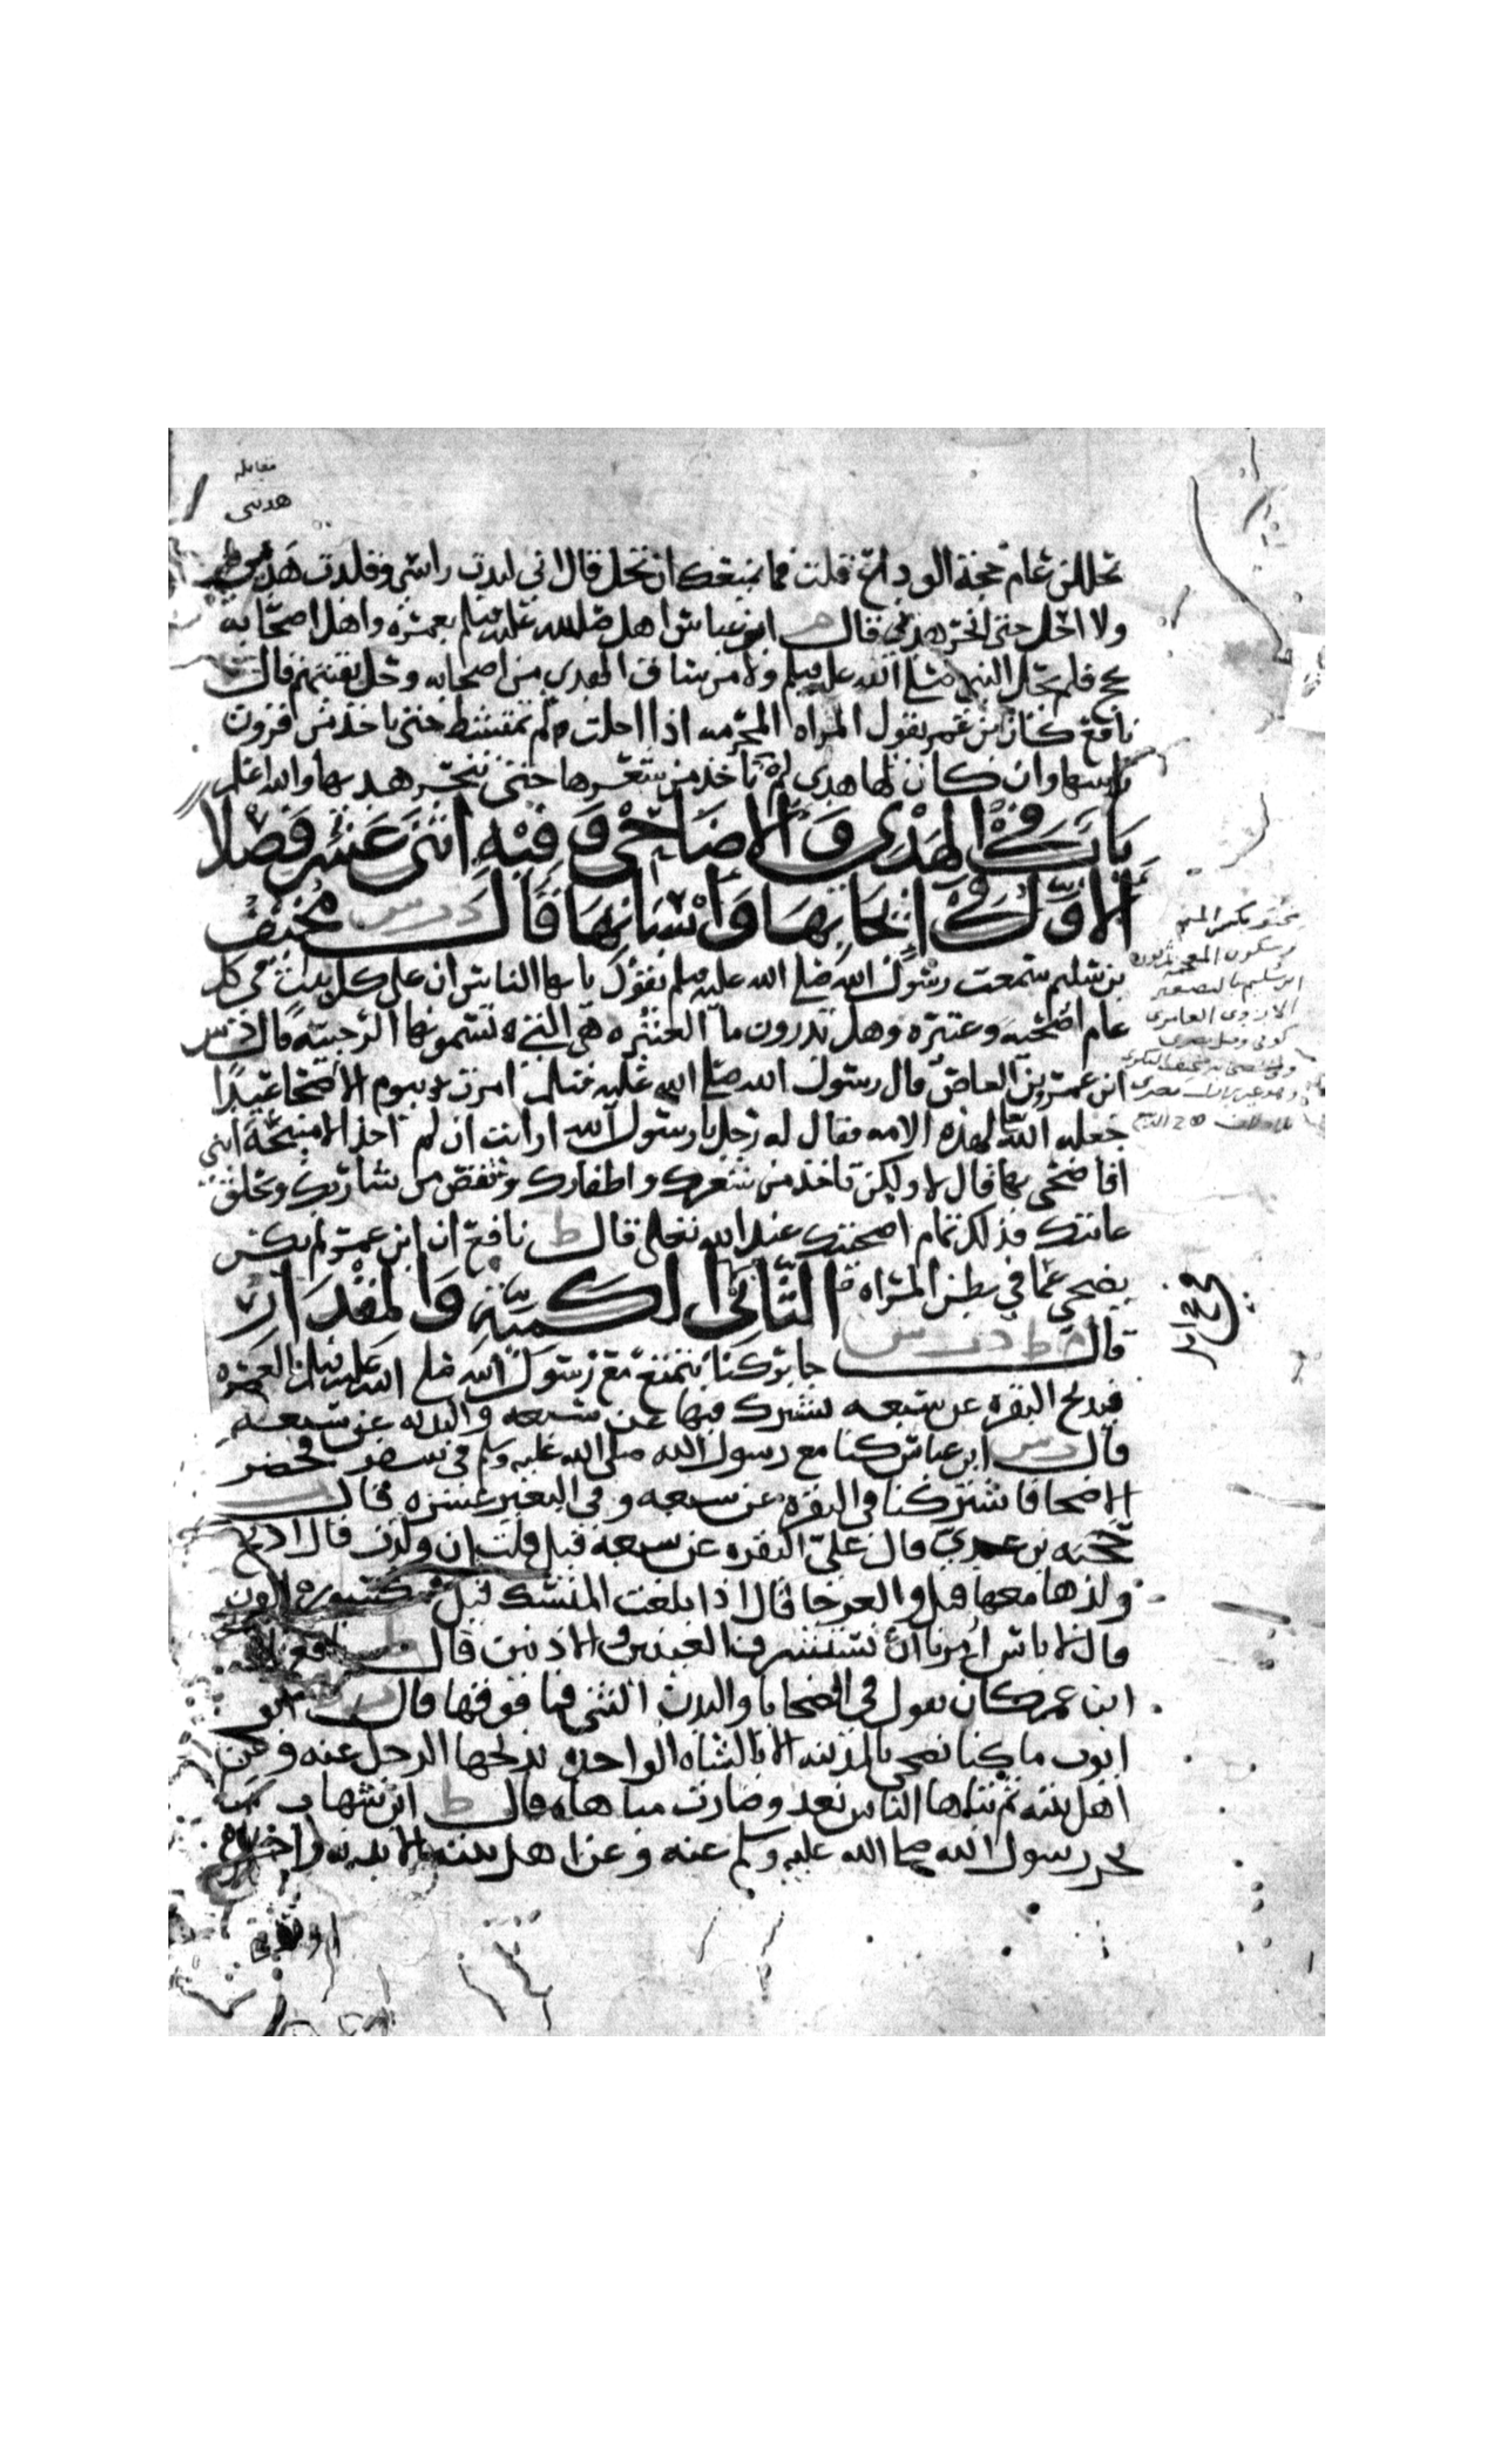 مقابله
هدىى
تحللن عام حجة الوداع قلت فما يمنعك ان تحل قال اني لبدت راسي وقلدت هديي
ولا احل حتى انحر هديي قال م ابن عباس اهل صلى الله عليه وسلم بعمره واهل اصحابه
بحج فلم يحل النبي صلى الله عليه وسلم ولا من ساق الهدي من اصحابه وحل بقيتهم قال ط
نافع كان ابن عمر يقول المراه المحرمه اذا احلت لم تمتشط حتى ياخذ من قرون
راسها وان كان لها هدي لم تاخذ من شعرها حتى تنحر هديها والله اعلم
باب في الهدي والاضاحي وفيه اثنى عشر فصلا
الاول في ايجابها واسنانها قال د ر س مخنف
بن سليم سمعت رسول الله صلى الله عليه وسلم يقول يا ايها الناس ان على كل بيت في كل
عام اضحيه وعتيره وهل تدرون ما العتيره هي التي تسمونها الرجبيه قال د س
ابن عمرو بن العاص قال رسول الله صلى الله عليه وسلم امرت بيوم الاضحا عيدا
جعله الله لهذه الامه فقال له رجل يا رسول الله ارايت ان لم اجد الا منيحة انثى
افاضحي بها قال لا ولكن تاخذ من شعرك واظفارك وتقص من شاربك وتحلق
عانتك فذلك تمام اضحيتك عند الله تعالى قال ط نافع ان ابن عمر لم يكن
يضحي عما في بطن المراه الثاني الكميه والمقدار
قال م ط د ت س جابر كنا نتمتع مع رسول الله صلى الله عليه وسلم بالعمره
فيذبح البقره عن سبعه نشترك فيها عن سبعه والبدنه عن سبعه
قال ت س ابن عباس كنا مع رسول الله صلى الله عليه وسلم في سفر فحضر
الاضحا فاشتركنا في البقره عن سبعه وفي البعير عشره قال ت
حجيه بن عدي قال علي البقره عن سبعه قيل فلت ان ولدت قال اذبح
ولدها معها قيل والعرجا قال اذا بلغت المنسك قيل فمكسوره القرن
قال لا باس امرنا ان نستشرف العينين والاذنين قال ط نافع ان
ابن عمر كان يقول في الضحايا والبدن الثني فما فوقها قال ت ابو
ايوب ما كنا نضحي بالمدينه الا بالشاه الواحده يذبحها الرجل عنه وعن
اهل بيته ثم تباها الناس بعد وصارت مباهاه قال ط ابن شهاب ما
نحر رسول الله صلى الله عليه وسلم عنه وعن اهل بيته الا بدنه واحده
او بقره
مخنف بكسر الميم
وسكون المعجمه
ابن سليم بالتصغير
الازدي الغامدي
كوفي